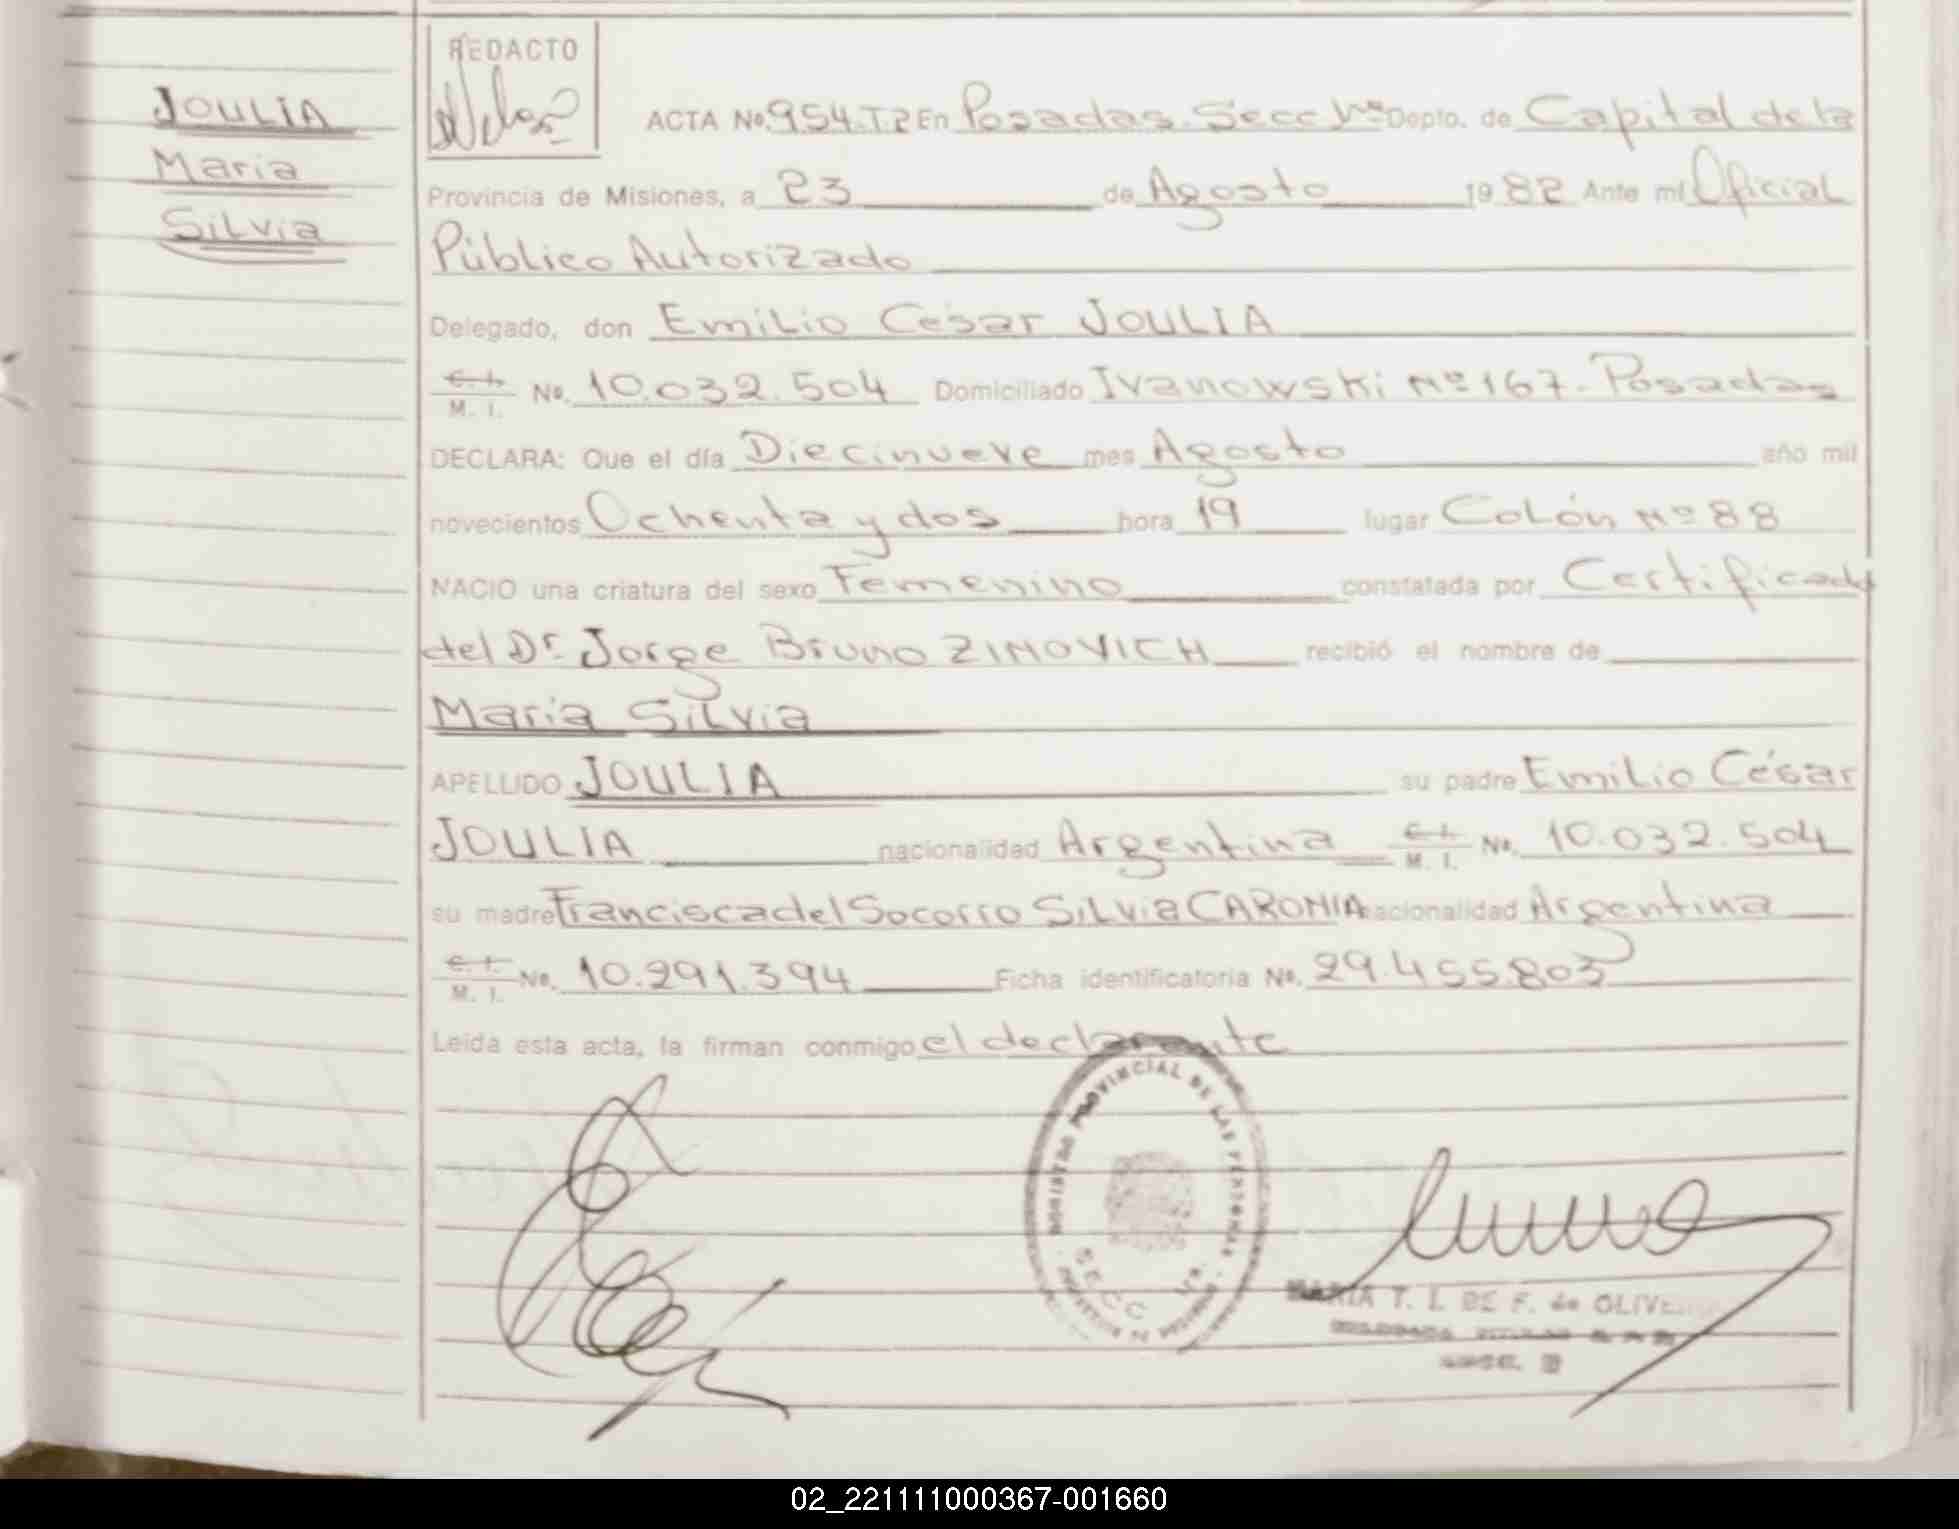 JOULIA
Maria
Silvia
REDACTO
ACTA No. 954.T.2 En Posadas. Secc 1ra Depto. de Capital de la
Provincia de Misiones, a 23 de Agosto 1982 Ante mí Oficial
Público Autorizado
Delegado, don Emilio César JOULIA
C. I. M. I. No. 10.032.504 Domiciliado Ivanowski Nº 167. Posadas
DECLARA: Que el día Diecinueve mes Agosto año mil
novecientos Ochenta y dos hora 19 lugar Colón Nº 88
NACIO una criatura del sexo Femenino constatada por Certificado
del Dr. Jorge Bruno ZINOVICH recibió el nombre de
Maria Silvia
APELLIDO JOULIA su padre Emilio César
JOULIA nacionalidad Argentina C. I. M. I. No. 10.032.504
su madre Francisca del Socorro Silvia CARONIA nacionalidad Argentina
C. I. M. I. No. 10.291.394 Ficha identificatoria No. 29.455.803
Leída esta acta, la firman conmigo el declarante
REGISTRO PROVINCIAL DE LAS PERSONAS
SECC 1ra.
MARIA T. L. DE F. de
02_221111000367-001660